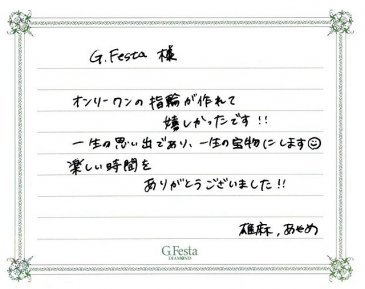 G.Festa 様
オンリーワンの指輪が作れて
嬉しかったです!!
一生の思い出であり、一生の宝物にします☺
楽しい時間を
ありがとうございました!!
雄麻, あやめ
G.Festa
DIAMOND